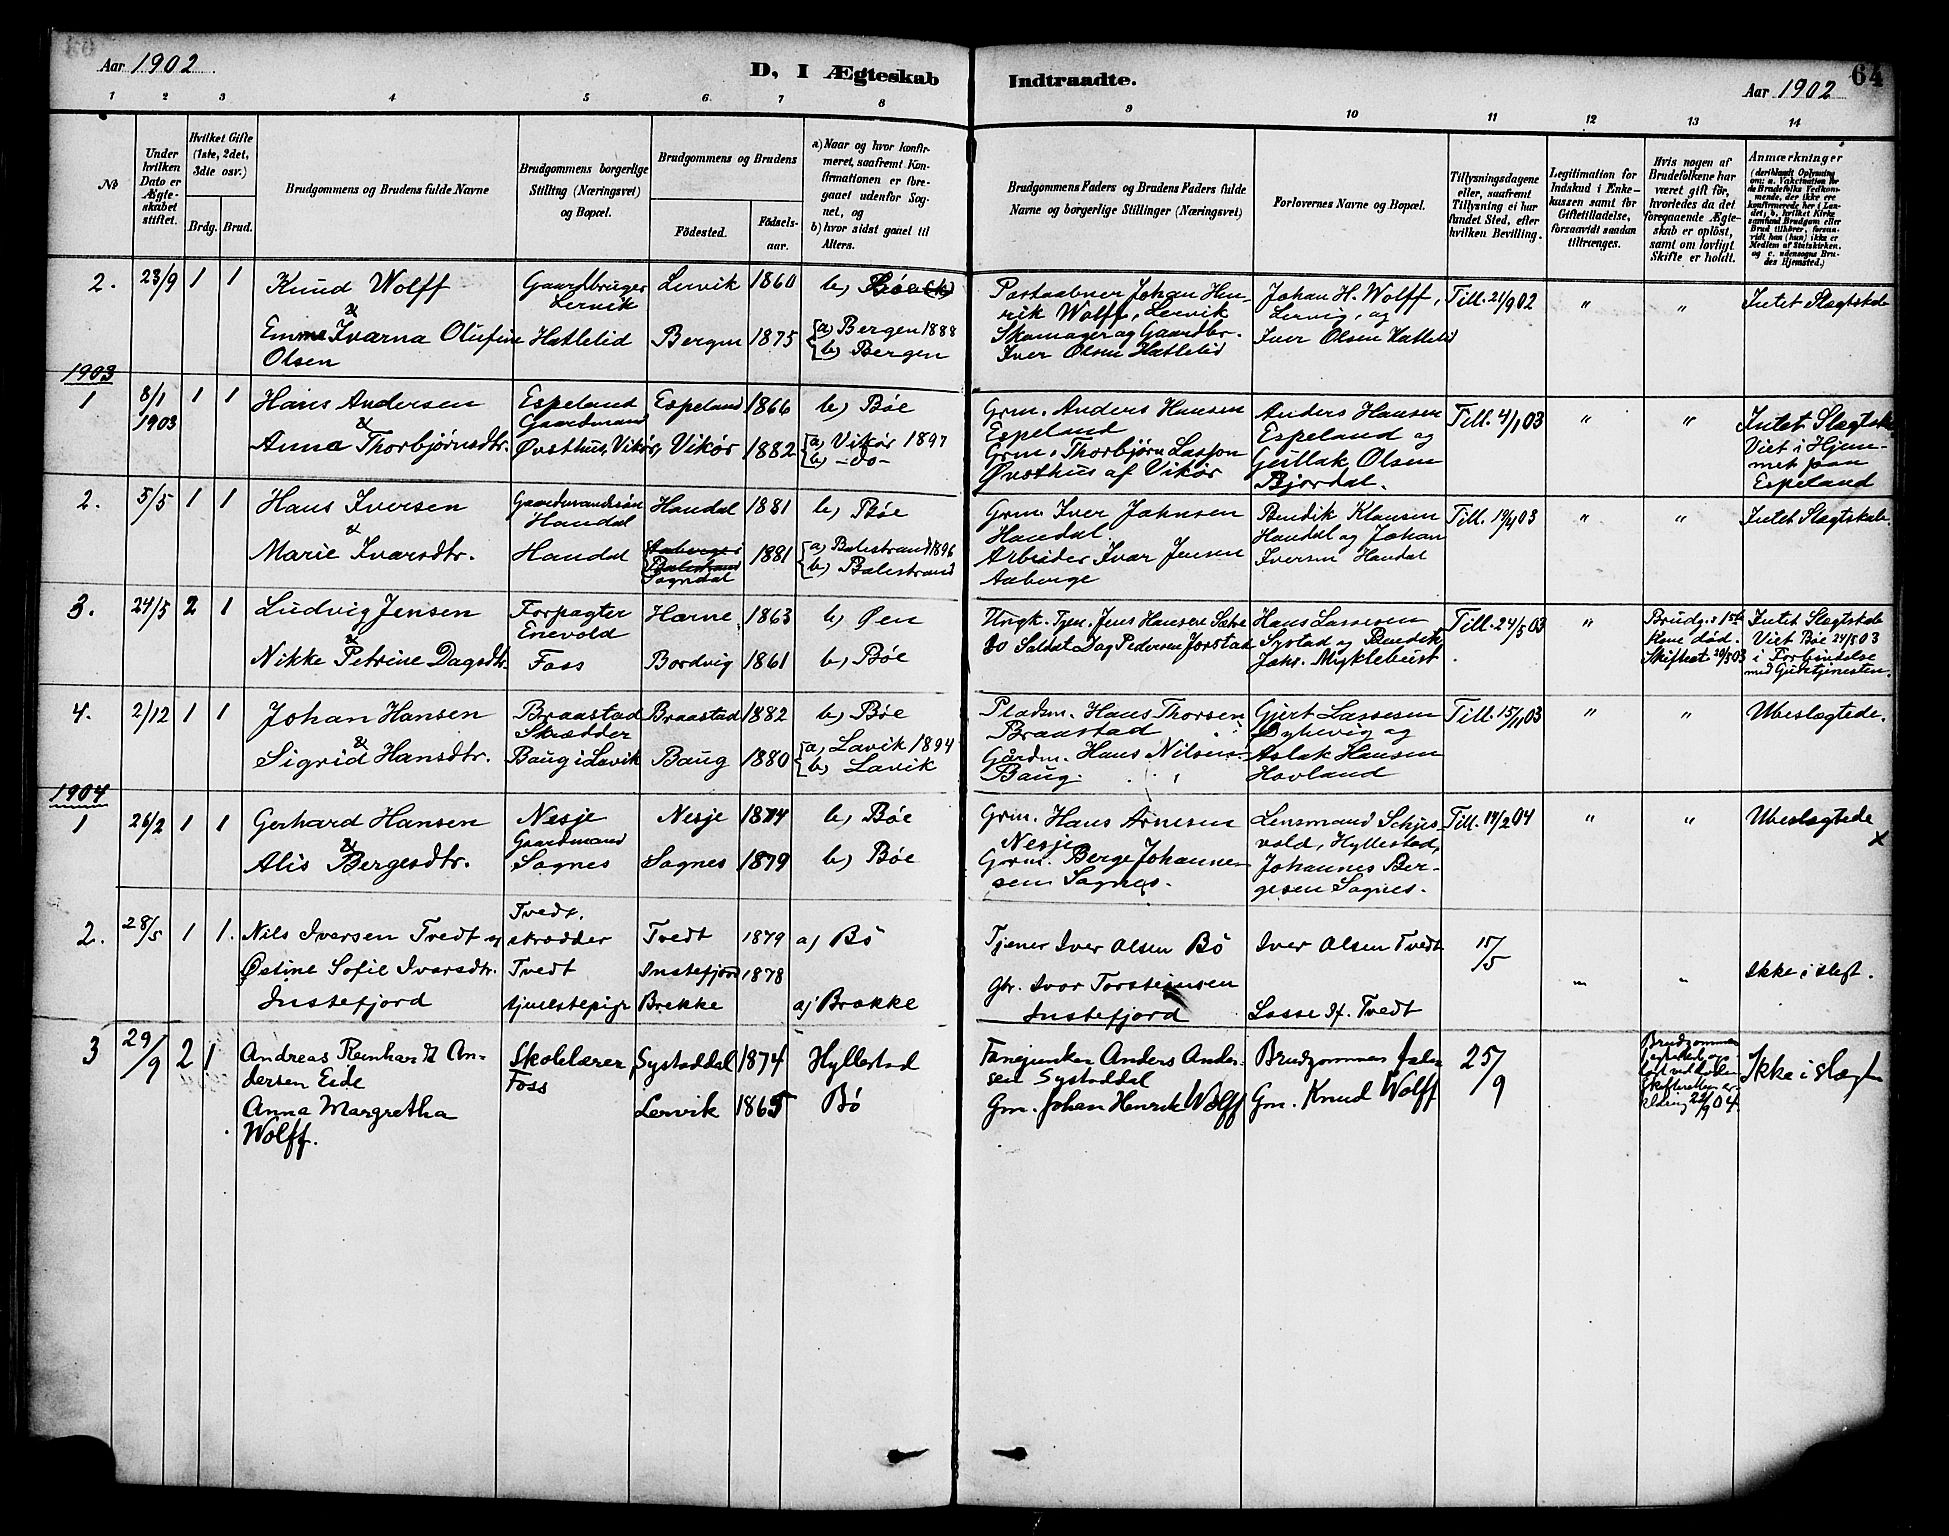 Aar 1902
D, I Ægteskab
Indtraadte.
Aar 1902
64
1 2 3 4 5 6 7 8 9 10 11 12 13 14
No
Under hvilken Dato er Ægteskabet stiftet.
Hvilket Gifte (1ste, 2det, 3die osv.)
Brdg. Brud.
Brudgommens og Brudens fulde Navne
Brudgommens borgerlige Stilling (Næringsvei) og Bopæl.
Brudgommens og Brudens
Fødested.
Fødsels-aar.
a) Naar og hvor konfirmeret, saafremt Konfirmationen er foregaaet udenfor Sognet, og
b) hvor sidst gaaet til Alters.
Brudgommens Faders og Brudens Faders fulde Navne og borgerlige Stillinger (Næringsvei)
Forlovernes Navne og Bopæl.
Tillysningsdagene eller, saafremt Tillysning ei har fundet Sted, efter hvilken Bevilling.
Legitimation for Indskud i Enkekassen samt for Giftetilladelse, forsaavidt saadan tiltrænges.
Hvis nogen af Brudefolkene har været gift før, hvorledes da det foregaaende Ægteskab er opløst, samt om lovligt Skifte er holdt.
Anmærkninger
(deriblandt Oplysning om: a. Vakcination for de Brudefolks Vedkommende, der ikke ere konfirmerede her i Landet, b. hvilket Kirkesamfund Brudgom eller Brud tilhører, forsaavidt han (hun) ikke er Medlem af Statskirken, og c. udensogns Brudes Hjemsted.)
2. 23/9 1 1
Knud Wolff
&
Emma Ivarna Olufine
Olsen
Gaardbruger
Lervik
Hatlelid
Lervik 1860
Bergen 1875
b) Bøe
a) Bergen 1888
b) Bergen
Postaabner Johan Hen-
rik Wolff, Lervik
Skomager og Gaardbr.
Iver Olsen Hatlelid
Johan H. Wolff,
Lervig, og
Iver Olsen Hatlelid
Till. 21/9 02
" "
Intet Slægtskab
1903
1 8/1 1903 1 1
Hans Andersen
&
Anna Thorbjørnsdtr.
Espeland
Gaardmand
Øvsthus, Vikør,
Espeland 1866
Vikør 1882
b) Bøe
a) Vikør 1897
b) -do-
Grm. Anders Hansen
Espeland
Grm. Thorbjørn Lasson
Øvsthus af Vikør
Anders Hansen
Espeland og
Gullak Olsen
Bjordal.
Till. 4/1 03
" "
Intet Slægtskab
Viet i Hjem-
met paa
Espeland
2. 5/5 1 1
Hans Iversen
&
Marie Ivarsdtr.
Gaardmandssøn
Handal
Handal
Handal 1881
Balestrand
Sogndal 1881
b) Bøe
a) Balestrand 1896
b) Balestrand
Grm. Iver Johnsen
Handal.
Arbeider Ivar Jensen
Aaberge
Bendik Klausen
Handal og Johan
Iversen Handal
Till. 19/4 03
" "
Intet Slægtskab.
3. 24/5 2 1
Ludvig Jensen
&
Nikke Petrine Dagsdtr.
Forpagter
Enevold
Foss
Harne 1863
Bordvig 1861
b) Øen
b) Bøe
Ungk. Tjen. Jens Hansen
do Soldat Dag Pedersen
Hans Lassesen
Systad og Bendik
Johs. Myklebust
Till. 24/5 03
Brudg.s 1ste
Kone død.
Skiftet 20/5 03
Intet Slægtskab
Viet Bøe 24/5 03
i Forbindelse
med Gudstjenesten.
4. 2/12 1 1
Johan Hansen
&
Sigrid Hansdtr.
Braastad
Skrædder
Baug i Lavik
Braastad 1882
Baug 1880
b) Bøe
a) Lavik 1894
b) Lavik
Pladsm. Hans Thorsen
Braastad
Gårdm. Hans Nilsen
Baug.
Gjert Lassesen
og
Aslak Hansen
Hovland
Till. 15/11 03
" "
Ubeslægtede.
1904
1 26/2 1 1
Gerhard Hansen
&
Alis Bergesdtr.
Nesje
Gaardmand
Sognes
Nesje 1874
Sognes 1879
b) Bøe
b) Bøe
Grm. Hans Arnesen
Nesje
Grm. Berge Johanne-
sen Sognes.
Lensmand Schjes-
vold, Hyllestad,
Johannes Ber-
gesen Sognes.
Till. 14/2 04
" "
Ubeslægtede
x
2. 28/5 1 1.
Nils Iversen Tvedt og
Østine Sofie Ivarsdtr.
Instefjord
Tvedt.
skrædder
Tvedt
Tvedt 1879
Instefjord 1878
Brekke
a) Bö
a) Brekke
Tjener Iver Olsen Bö
Gbr. Ivar Torsteinsen
Instefjord
Iver Olsen Tvedt
Lasse Tvedt
15/5
" "
Ikke i slegt.
3 29/9 2 1
Andreas Reinhardt An-
dersen Eide
Anna Margretha
Wolff.
Skolelærer,
Foss
Systaddal 1874
Lervik 1865
Hyllestad
Bö
Fanejunker Anders Ander-
sen Systaddal
Gm. Johan Henrik Wolff
Brudgommens fader
Gm. Knud Wolff
25/9
Brudgommen
22/9 04.
Ikke i slægt